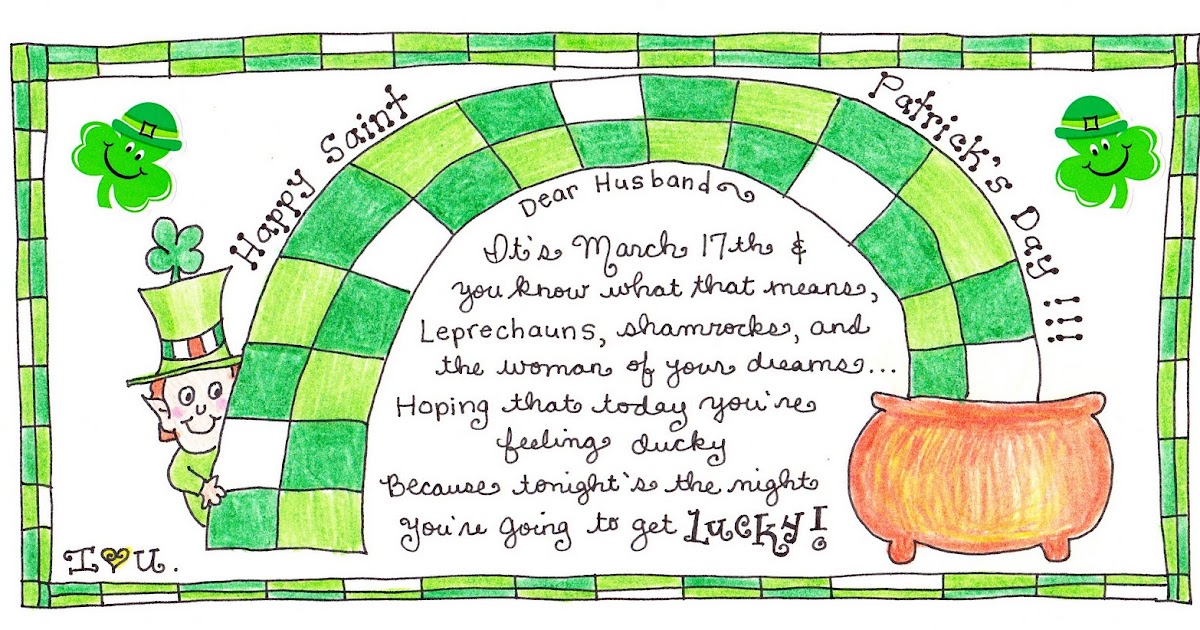 Happy Saint Patrick's Day !!!
Dear Husband
It's March 17th &
you know what that means,
Leprechauns, shamrocks, and
the woman of your dreams...
Hoping that today you're
feeling ducky
Because tonight's the night
you're going to get Lucky!
I ♥ U.